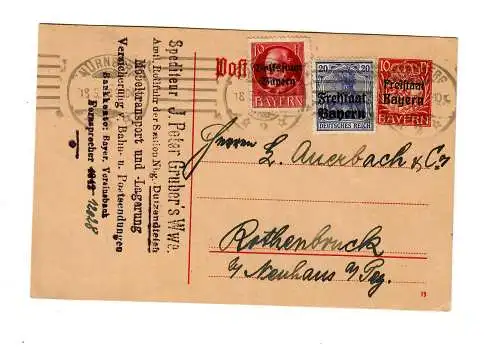 Spediteur J. Peter Gruber's Wwe.
Amtl. Rollfuhr der Station Nbg.-Dutzendteich
Möbeltransport und -Lagerung
Versicherung v. Bahn- u. Postsendungen
Bankkonto: Bayer. Vereinsbank
Fernsprecher
12028
NÜRNBERG
18
Post
10
Volksstaat
Bayern
BAYERN
20 20
Freistaat
Bayern
DEUTSCHES REICH
10
Freistaat
Bayern
BAYERN
Herren L. Auerbach & Co
Rothenbruck
b/ Neuhaus a/ Peg.